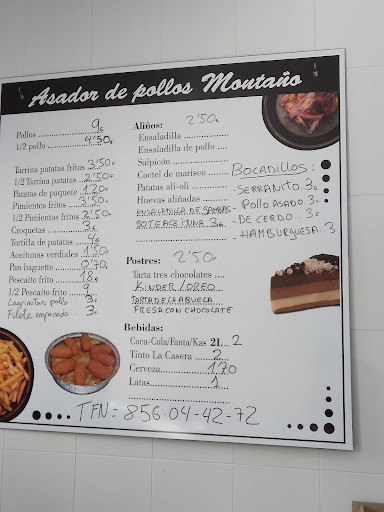 Asador de pollos Montaño
Pollos ............ 9€
1/2 pollo ............ 4'50
Tarrina patatas fritas 3'50€
1/2 Tarrina patatas 2'50€
Patatas de paquete 1'20€
Pimientos fritos 3'50€
1/2 Pimientos fritos 2'50€
Croquetas ............ 3€
Tortilla de patatas 4€
Aceitunas verdiales 1'50€
Pan baguette ............ 0'70€
Pescaito frito ............ 18€
1/2 Pescaito frito 9€
Lagrimitas pollo.. 3€
Filete empanado.. 3€
Aliños: 2'50€
Ensaladilla ............
Ensaladilla de pollo ....
Salpicón ............
Coctel de marisco ........
Patatas ali-oli ............
Huevas aliñadas ............
ENSALADILLA DE GAMBAS
BOTE ACEITUNA 3€
BOCADILLOS:
- SERRANITO. 3€
- POLLO ASADO. 3€
- DE CERDO... 3€
- HAMBURGUESA...3
Postres: 2'50€
Tarta tres chocolates ....
KINDER/OREO
TARTA DE LA ABUELA
FRESA CON CHOCOLATE
Bebidas:
Coca-Cola/Fanta/Kas 2L .. 2
Tinto La Casera .... 2
Cerveza ............ 1'70
Latas ............ 1
TFN = 856-04-42-72